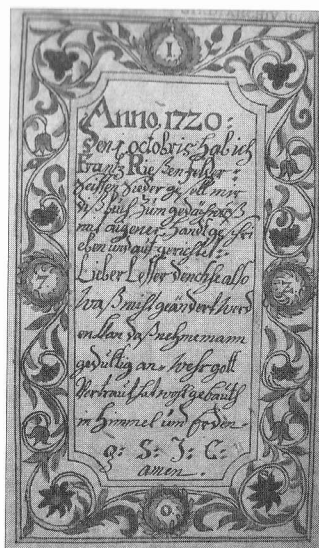 1
Anno. 1720:
Den 1 octobris hab ich
Frantz Rießenfelder
Seiffen Sieder gesell mir
diß buch zum gedächtnuß
mit aigener Handt geschri
eben und auf gerichtet:
7
Lieber Lesser denckhe also
2
Waß nicht geändert werd
en kan daß nehme man
gedultig an. Wehr gott
Vertraut hat wohl gebauth
in Himmel und Erden.
S: J: C:
amen.
0